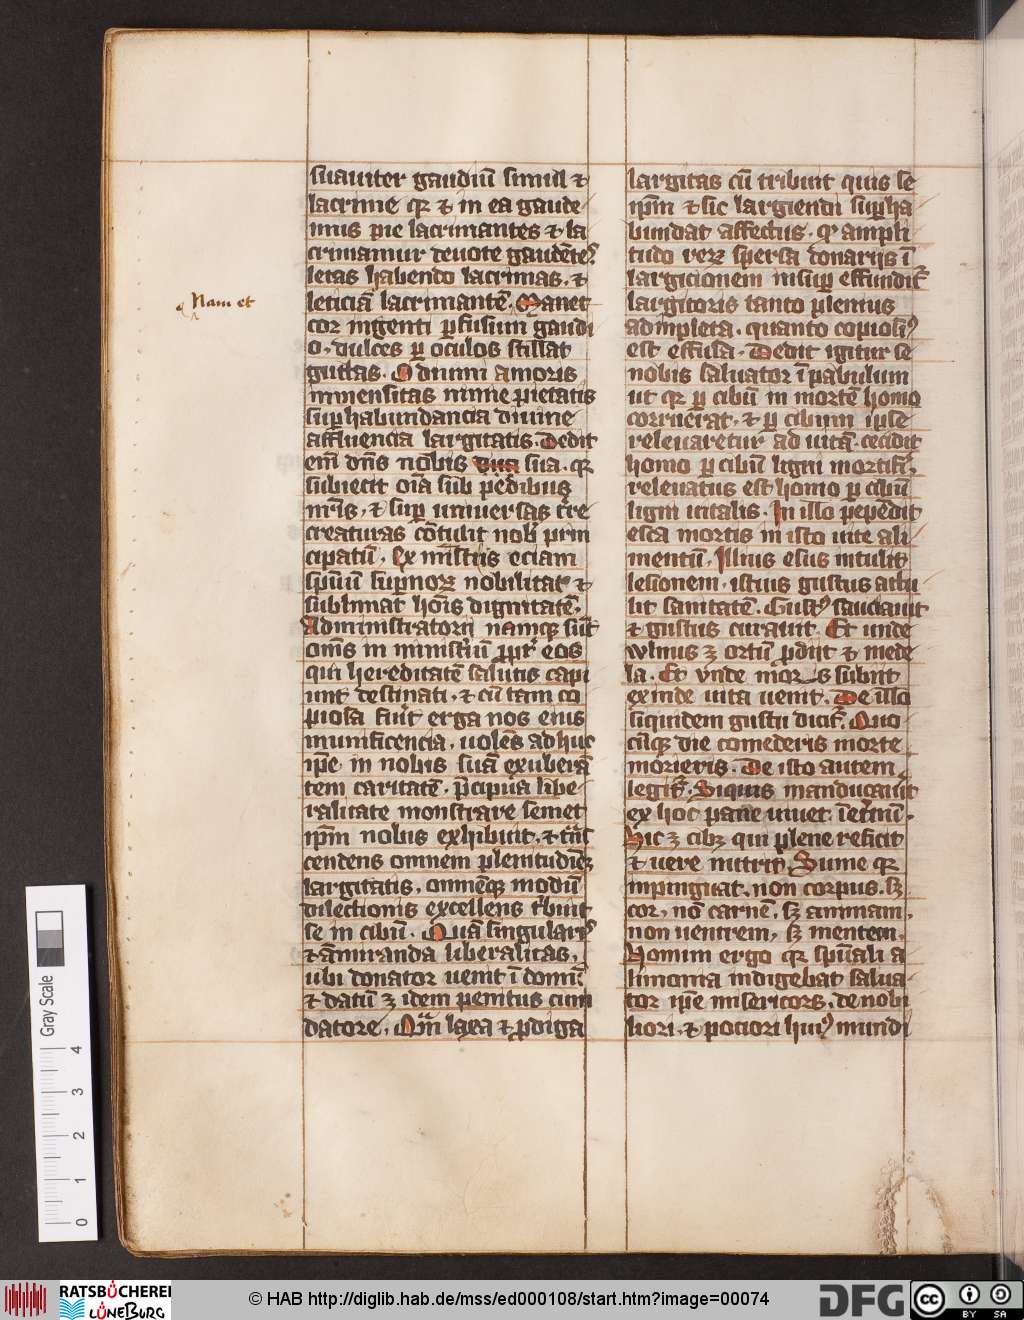 Nam et
suauiter gaudiū simul ⁊
lacrime qr ⁊ in ea gaude
mus pie lacrimantes ⁊ la
crimamur deuote gaudētes
letas habendo lacrimas. ⁊
leticiā lacrimantē. Manet
cor ingenti ꝑfusum gaudi
o. dulces ꝑ oculos stillat
guttas. O diuini amoris
inmensitas nimie pietatis
suꝑhabundancia diuine
affluencia largitatis. Dedit
em̄ dn̄s nobis sua. qr
subiecit oīa sub pedibus
nr̄is. ⁊ suꝑ uniuersas t're
creaturas cōtulit nob prin
cipatū. Ex mīstriis eciam
spūū suꝑnoꝝ nobilitat ⁊
sublimat hoīs dignitatē.
Administratorii namqꝫ sūt
om̄s in ministiū ꝓpt' eos
qui hereditatē salutis capi
unt destinati. ⁊ cū tam co
piosa fu'it erga nos eius
munificencia. uolēs adhuc
ip̄e in nobis suā exuberā
tem caritatē. p̄cipua libe
ralitate monstrare semet
ip̄m nobis exhibuit. ⁊ t̄ns
cendens omnem plenitudīez
largitatis. omnēqꝫ modū
dilectionis excellens t'buit
se in cibū. O quā singularis
⁊ āmiranda liberalitas.
ubi donator uenit ī donū.
⁊ datū ꝫ idem penitus cum
datore. Qm̄ laxa ⁊ ꝓdiga
largitas cū tribuit quis se
ip̄m ⁊ sic largiendi suꝑha
bundat affectus. qr ampli
tudo reꝝ spersa donariis ī
largicionem insuꝑ effundit'
largitoris tanto plenius
adimpleta. quanto copiosiꝰ
est effusa. Dedit igitur se
nobis saluator ī pabulum
ut qr ꝑ cibū in mortē homo
corruerat. ⁊ ꝑ cibum ipse
releuaretur ad uitā. cecidit
homo ꝑ cibū ligni mortif'i.
releuatus est homo ꝑ cibū
ligni uitalis. In illo pependit
esca mortis in isto uite ali
mentū. Illius esus intulit
lesionem. istius gustus attu
lit sanitatē. Gustꝰ sauciauit
⁊ gustus curauit. Et unde
wlnus ꝫ ortū ꝓdiit ⁊ mede
la. Et vnde mors subiit
exinde uita uenit. De illo
siquidem gustu dicit'. Quo
cūqꝫ die comederis morte
morieris. De isto autem
legit'. Siquis manducauit
ex hoc pane uiuet ī et'nū.
Hic ꝫ cibꝫ qui plene reficit
⁊ uere nutrit. Sume qr
inpinguat. non corpus. sꝫ
cor. nō carnē. sꝫ animam.
non uentrem. sꝫ mentem.
Homini ergo qr spūali a
limonia indigebat salua
tor ip̄e misericors. de nobi
liori. ⁊ pociori huiꝰ mundi
Gray Scale
4
3
2
1
0
RATSBÜCHEREI
LÜNEBURG
© HAB http://diglib.hab.de/mss/ed000108/start.htm?image=00074
DFG
cc BY SA